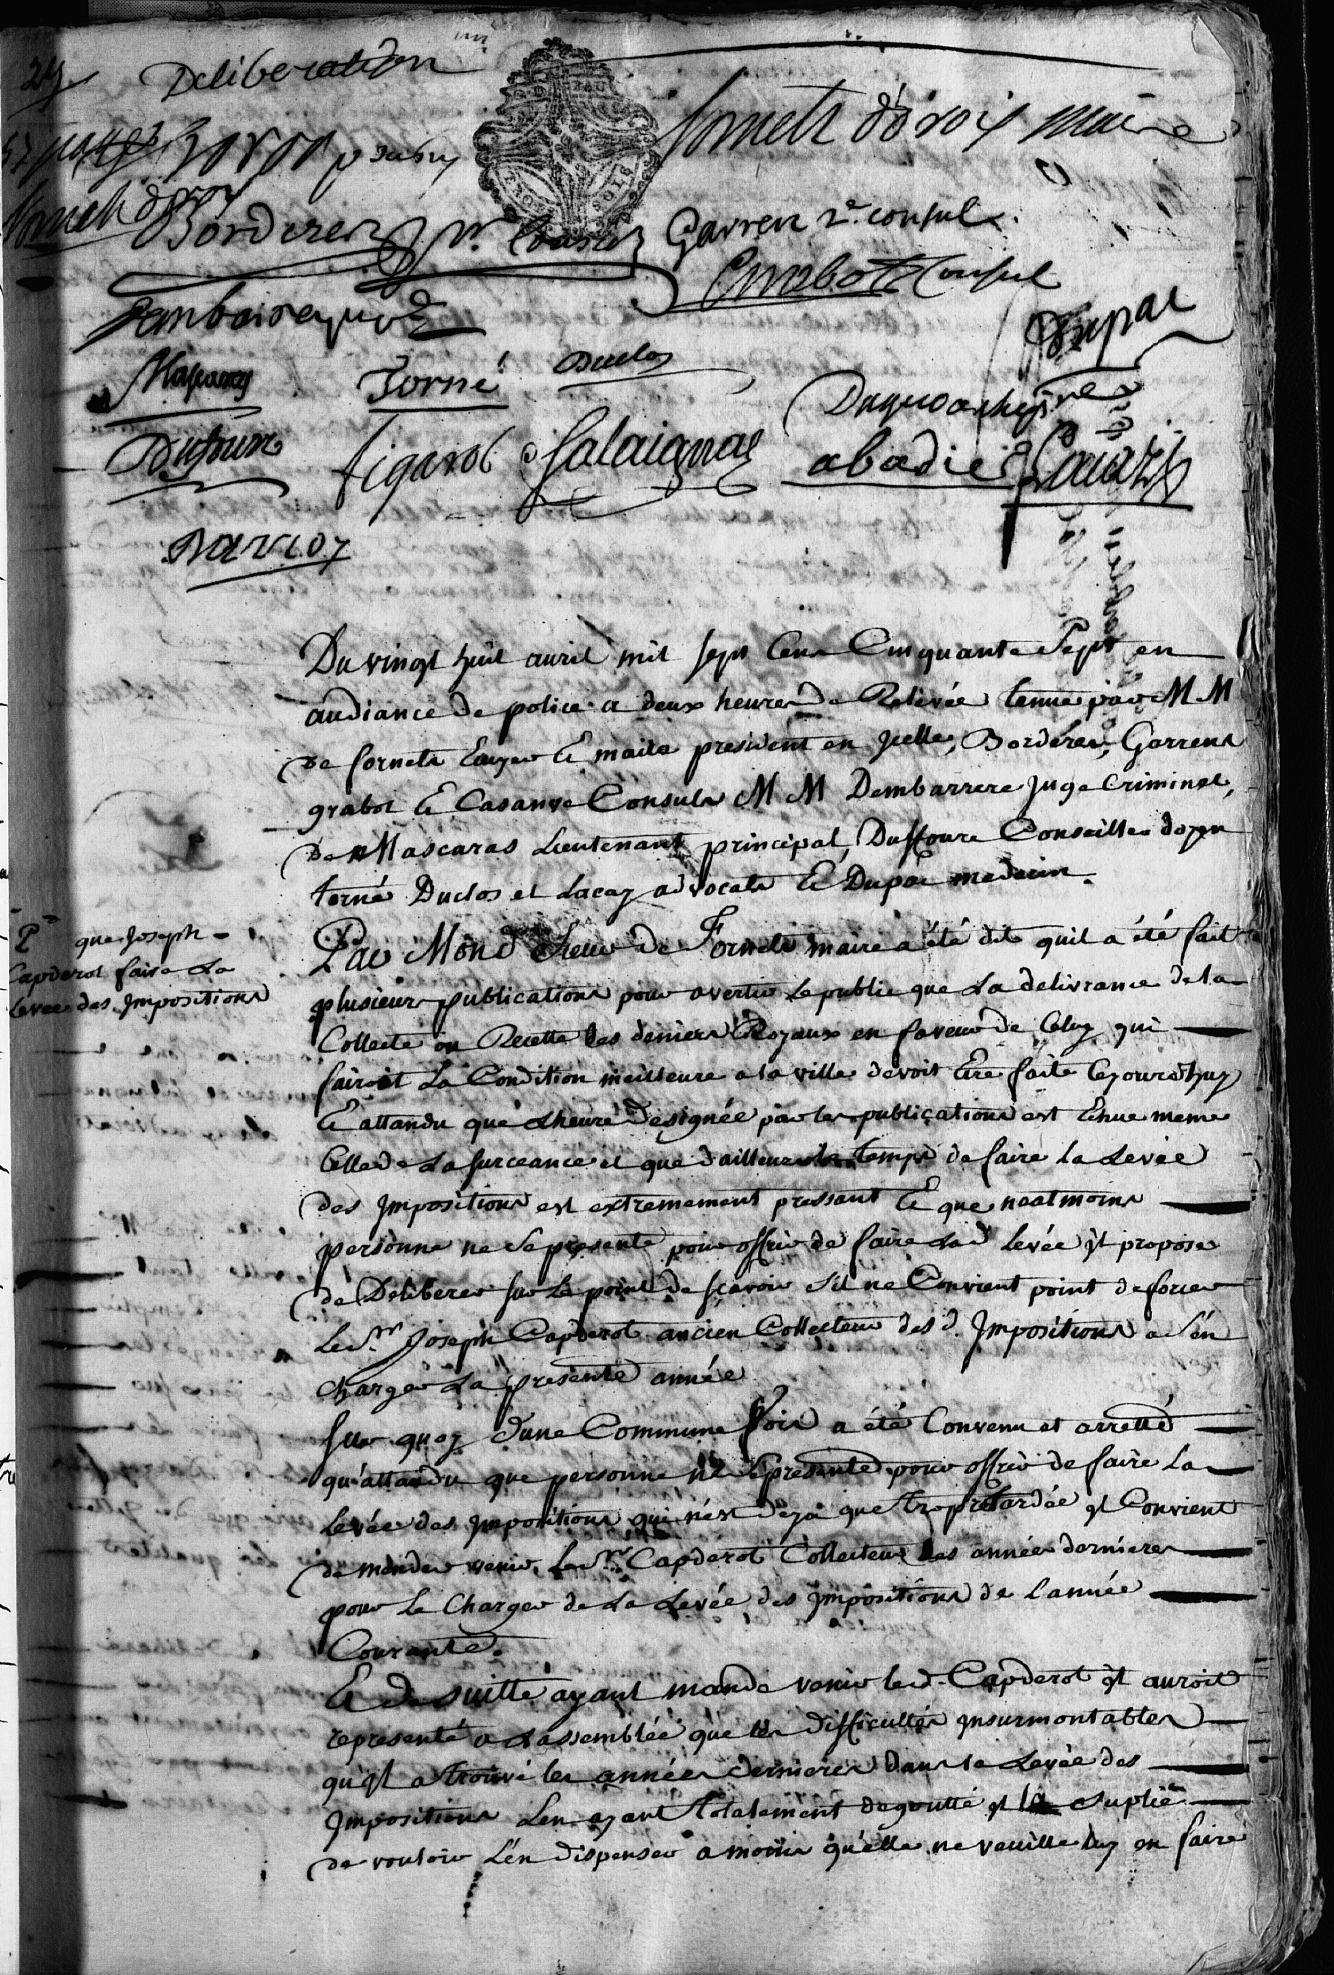 Deliberation
Fornetz d'oroix maire
Borderes
Garrens 2e. consul
Grabot Consul
Cambaiseque
Dupac
Mascaras
Torné
Duclos
Duffourc
figarol
Salaignac
abadie
Lacaze
Navios
Du vingt huit avril mil sept Cens Cinquante Sept en
audiance de police a deux heures de Relevée tenue par M M
de fornets Ecuyer & maire president en jcelle, Borderes, Garrens
grabot & Casanve Consuls M M Dembarrere Juge Criminel,
de Mascaras Lieutenant principal, Duffourc Conseiller doyen
torné Duclos et Lacay advocats & Dupac medecin.
P que Joseph
Capderot faira La
Levée des Jmpositions
Par Mond Sieur de Fornets maire a été dit quil a été fait
plusieurs publications pour avertir Le public que La delivrance de la
Collecte ou Recette des deniers Royaux en faveur de Celuy qui
fairoit La Condition meilleure a la ville devoit Etre faite Cejourdhuy
& attandu que Lheure designée par les publications est Echue meme
Celle de La surceance et que dailleurs le temps de faire la Levée
des Jmpositions est extremement pressant & que neatmoins
personne ne se presente pour offrir de faire Lad Levée jl propose
de Deliberer sur Le point de scavoir s'il ne Convient point de forcer
Le Sr. Joseph Capderot ancien Collecteur des d. Jmpositions a s'en
charger La presente année
Sur quoy d'une Commune Voix a été Convenu et arretté
qu'attandu que personne ne se presente pour offrir de faire La
Levée des Jmpositions qui n'est deja que trop retardée jl Convient
de mander venir Le Sr. Capderot Collecteur des années dernieres
pour Le Charger de La Levée des jmpositions de Lannée
Courante.
& de suitte ayant mandé venir led. Capderot jl auroit
representé a Lassemblée que les difficultés jnsurmontables
qu'jl a trouvé les années dernieres dans la Levée des
Jmpositions Len ayant totalement degoutté jl la suplie
de vouloir L'en dispenser a moins qu'elle ne veuille luy en faire